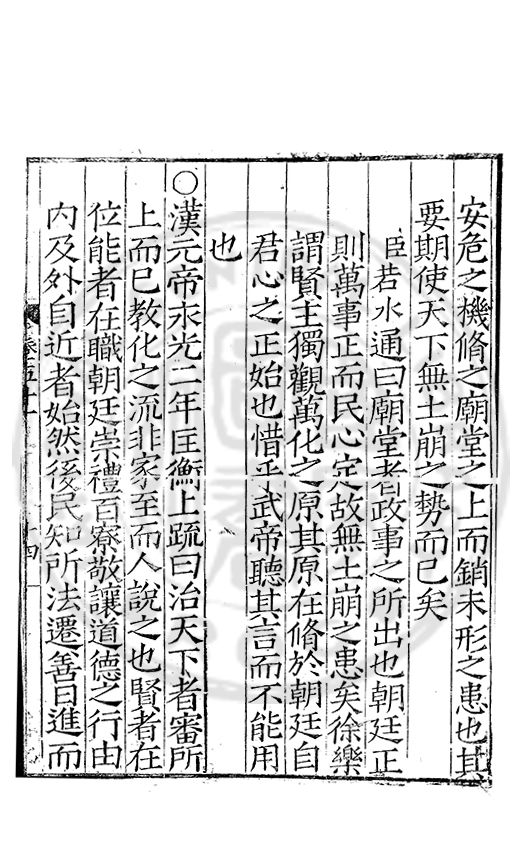 安危之機脩之廟堂之上而銷未形之患也其
要期使天下無土崩之勢而已矣
臣若水通曰廟堂者政事之所出也朝廷正
則萬事正而民心定故無土崩之患矣徐樂
謂賢主獨觀萬化之原其原在脩於朝廷自
君心之正始也惜乎武帝聽其言而不能用
也
○漢元帝永光二年匡衡上疏曰治天下者審所
上而已教化之流非家至而人說之也賢者在
位能者在職朝廷崇禮百寮敬讓道德之行由
内及外自近者始然後民知所法遷善日進而